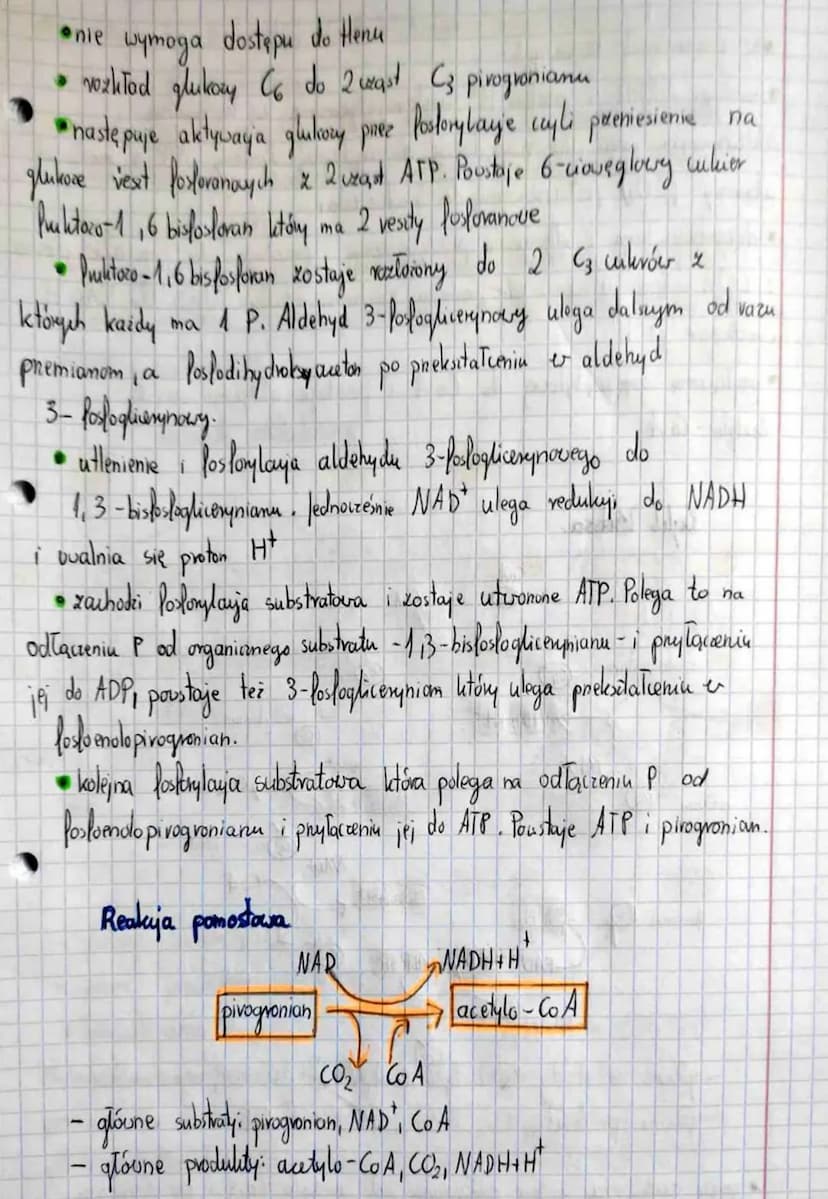 •nie wymaga dostępu do tlenu
• rozkład glukozy C6 do 2 cząst C3 pirogronianu
•następuje aktywacja glukozy przez fosforylację czyli przeniesienie na
glukozę reszt fosforanowych z 2 cząst ATP. Powstaje 6-ciowęglowy cukier
fruktozo-1,6 bisfosforan który ma 2 reszty fosforanowe
• fruktozo-1,6 bisfosforan zostaje rozłożony do 2 C3 cukrów z
których każdy ma 1 P. Aldehyd 3-fosfoglicerynowy ulega dalszym od razu
przemianom, a fosfodihydroksyaceton po przekształceniu w aldehyd
3-fosfoglicerynowy.
• utlenienie i fosforylacja aldehydu 3-fosfoglicerynowego do
1,3-bisfosfoglicerynianu. Jednocześnie NAD+ ulega redukcji do NADH
i uwalnia się proton H+
• zachodzi fosforylacja substratowa i zostaje utworzone ATP. Polega to na
odłączeniu P od organicznego substratu -1,3-bisfosfoglicerynianu- i przyłączeniu
jej do ADP, powstaje też 3-fosfoglicerynian który ulega przekształceniu w
fosfoenolopirogronian.
• kolejna fosforylacja substratowa która polega na odłączeniu P od
fosfoenolopirogronianu i przyłączeniu jej do ATP. Powstaje ATP i pirogronian.
Reakcja pomostowa
NAD NADH+H+
pirogronian acetylo-CoA
CO2 CoA
- główne substraty: pirogronian, NAD+, CoA
- główne produkty: acetylo-CoA, CO2, NADH+H+